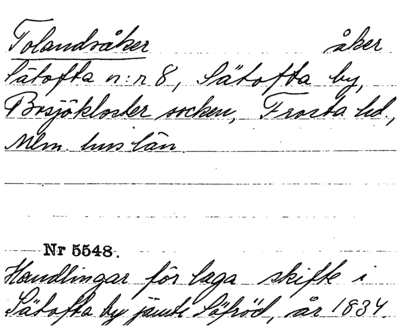 Tolandsåker åker
Sätofta n:r 8, Sätofta by,
Bosjökloster socken, Frosta hd.,
Mlm. hus län.
Nr 5548.
Handlingar för laga skifte i
Sätofta by jämte Löfröd, år 1834.